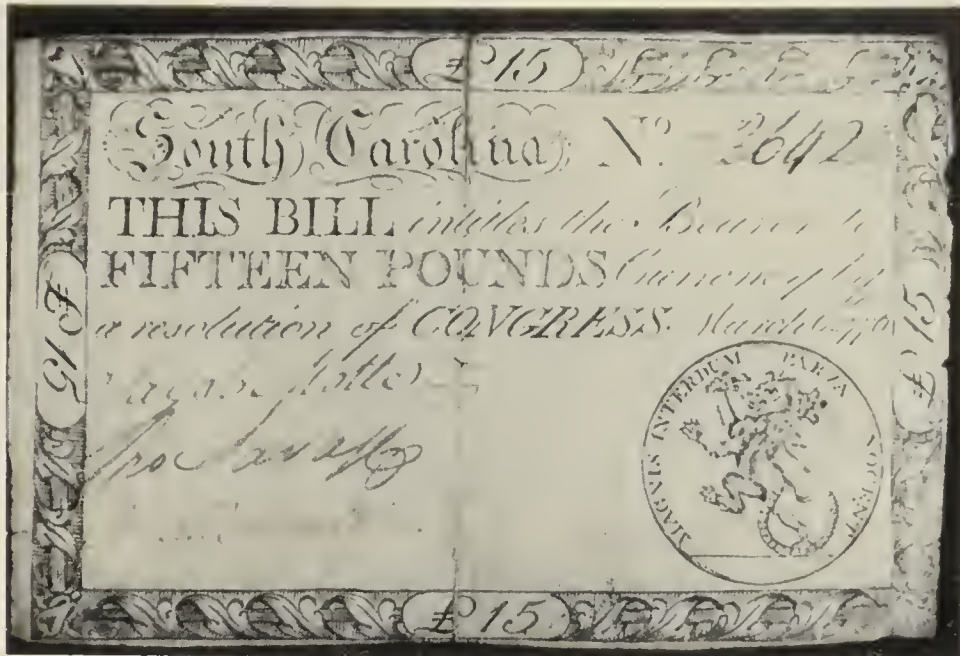 £15
South Carolina Nº 2642
THIS BILL intitles the Bearer to
FIFTEEN POUNDS Currency by
a resolution of CONGRESS. March
£15
£15
MAGNIS INTERDUM PARVA NOCENT
£15